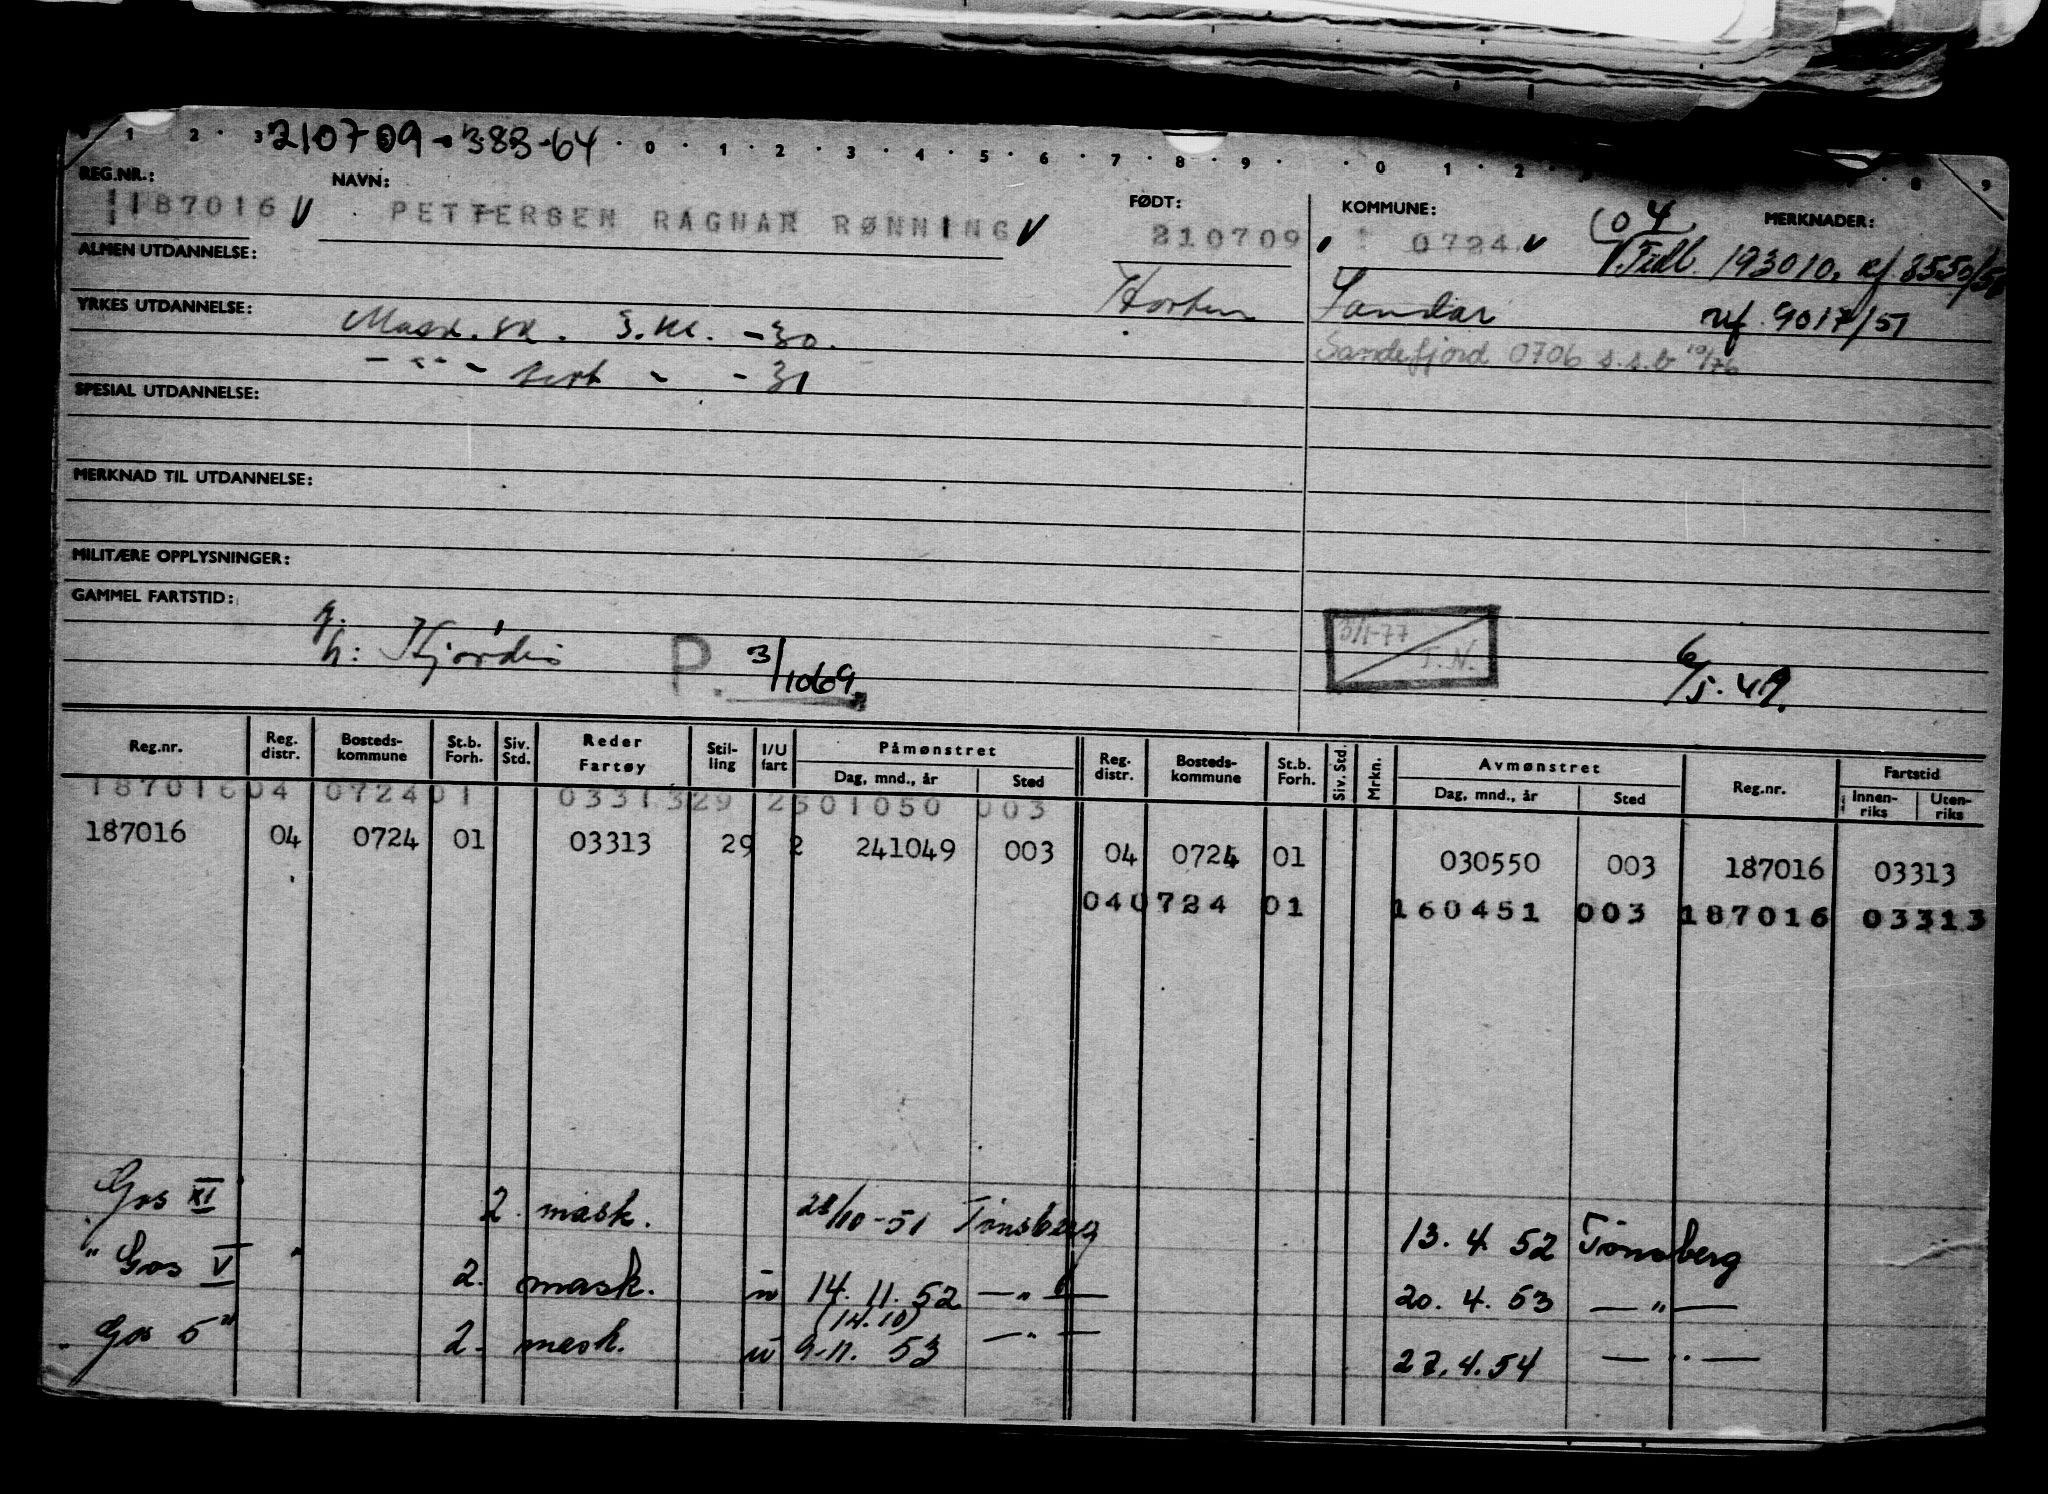 1 2 3 210709-383-64 0 1 2 3 4 5 6 7 8 9 0 1 2 8 9
REG.NR.: NAVN: FØDT: KOMMUNE: MERKNADER:
187016 V PETTERSEN RAGNAR RØNNING V 210709 0724 V 04
ALMEN UTDANNELSE: V.Fidl. 193010,
YRKES UTDANNELSE: Mask. sk. 3. kl. -30. Horten Sandar ref. 9017/51
- " - sert - -31 Sandefjord 0706 s.s.b 10/76
SPESIAL UTDANNELSE:
MERKNAD TIL UTDANNELSE:
MILITÆRE OPPLYSNINGER:
GAMMEL FARTSTID:
h: Hjørdis P. 3/1069 3/1-77 T.N. 6/5.49.
Reg.nr. Reg. distr. Bosteds-kommune St.b. Forh. Siv. Std. Reder Fartøy Stil-ling I/U fart Påmønstret Dag, mnd., år Sted Reg. distr. Bosteds-kommune St.b. Forh. Siv. Std. Mrkn. Avmønstret Dag, mnd., år Sted Reg.nr. Fartstid Innen-riks Uten-riks
187016 04 0724 01 03313 29 2 301050 003
187016 04 0724 01 03313 29 2 241049 003 04 0724 01 030550 003 187016 03313
04 0724 01 160451 003 187016 03313
Gos XI 2. mask. 28/10-51 Tønsberg 13.4 52 Tønsberg
" Gos V " 2. mask. u 14.11.52 - " - 20.4.53 - " -
(14.10)
Gos 5" 2. mask. u 9.11.53 - " - 27.4.54 - " -